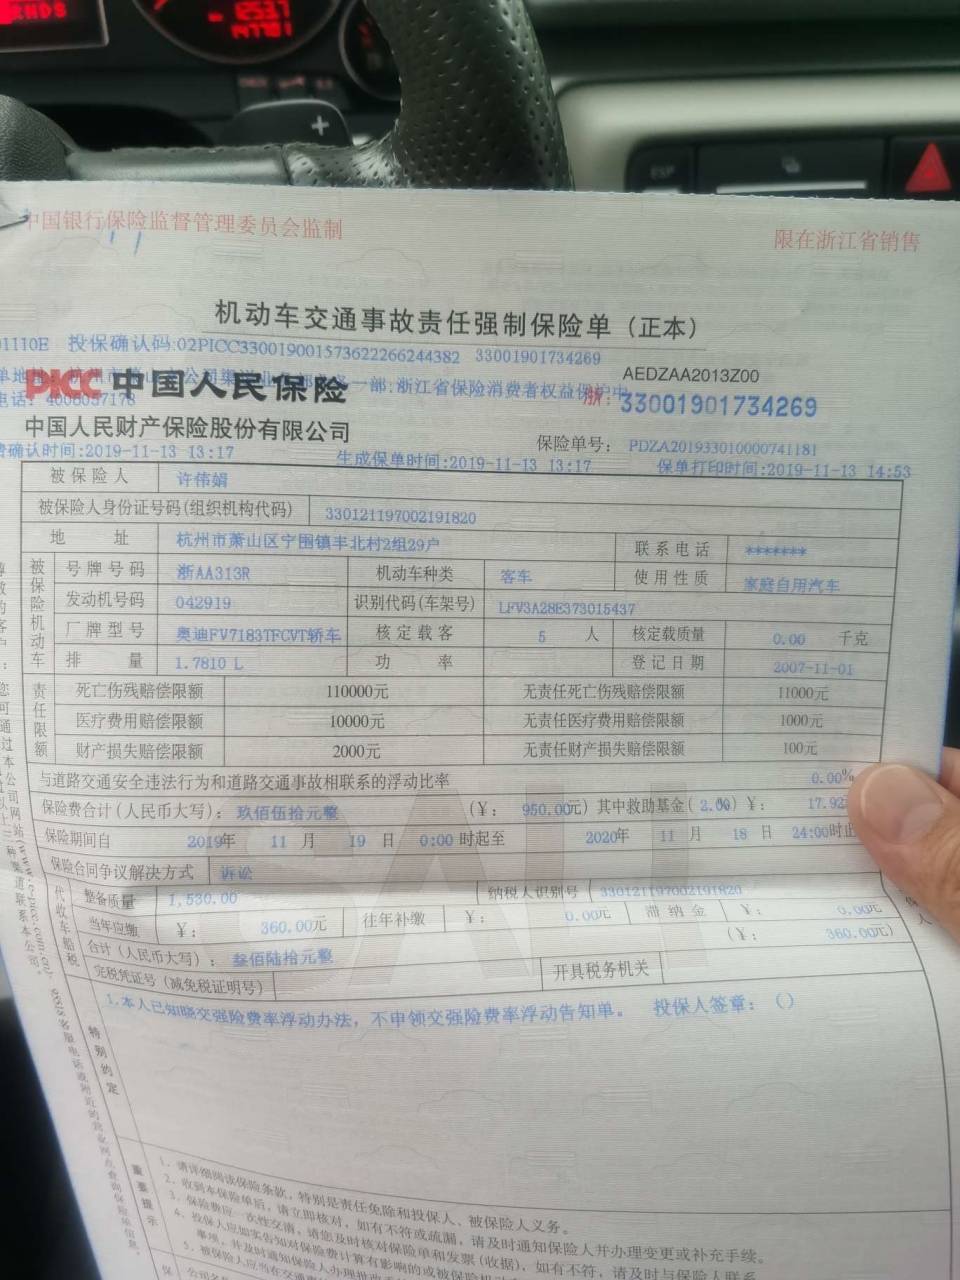 ESP
中国银行保险监督管理委员会监制
限在浙江省销售
机动车交通事故责任强制保险单（正本）
01110E 投保确认码:02PICC330019001573622266244382 33001901734269
AEDZAA2013Z00
PICC 中国人民保险
浙江省保险消费者权益保护中
电话: 4008057178
浙: 33001901734269
中国人民财产保险股份有限公司
保险单号： PDZA201933010000741181
费确认时间:2019-11-13 13:17 生成保单时间:2019-11-13 13:17 保单打印时间:2019-11-13 14:53
被保险人 许伟娟
被保险人身份证号码(组织机构代码) 330121197002191820
地 址 杭州市萧山区宁围镇丰北村2组29户 联系电话 *******
被保险机动车
号牌号码 浙AA313R 机动车种类 客车 使用性质 家庭自用汽车
发动机号码 042919 识别代码(车架号) LFV3A28E373015437
厂牌型号 奥迪FV7183TFCVT轿车 核定载客 5 人 核定载质量 0.00 千克
排 量 1.7810 L 功 率 登记日期 2007-11-01
责任限额
死亡伤残赔偿限额 110000元 无责任死亡伤残赔偿限额 11000元
医疗费用赔偿限额 10000元 无责任医疗费用赔偿限额 1000元
财产损失赔偿限额 2000元 无责任财产损失赔偿限额 100元
与道路交通安全违法行为和道路交通事故相联系的浮动比率 0.00%
保险费合计(人民币大写)： 玖佰伍拾元整 (￥： 950.00元) 其中救助基金( 2.00%) ￥： 17.92
保险期间自 2019年 11 月 19 日 0:00 时起至 2020年 11 月 18 日 24:00时止
保险合同争议解决方式 诉讼
代收车船税
整备质量 1,530.00 纳税人识别号 330121197002191820
当年应缴 ￥： 360.00元 往年补缴 ￥： 0.00元 滞纳金 ￥： 0.00元
合计(人民币大写)： 叁佰陆拾元整 (￥： 360.00元)
完税凭证号（减免税证明号） 开具税务机关
特别约定
1.本人已知晓交强险费率浮动办法，不申领交强险费率浮动告知单。 投保人签章：（）
重要提示
1、请详细阅读保险条款，特别是责任免除和投保人、被保险人义务。
2、收到本保险单后，请立即核对，如有不符或疏漏，请及时通知保险人并办理变更或补充手续。
3、保险费应一次性交清，请您及时核对保险单和发票（收据），如有不符，请及时与保险人联系。
4、投保人应如实告知对保险费计算有影响的或被保险机动